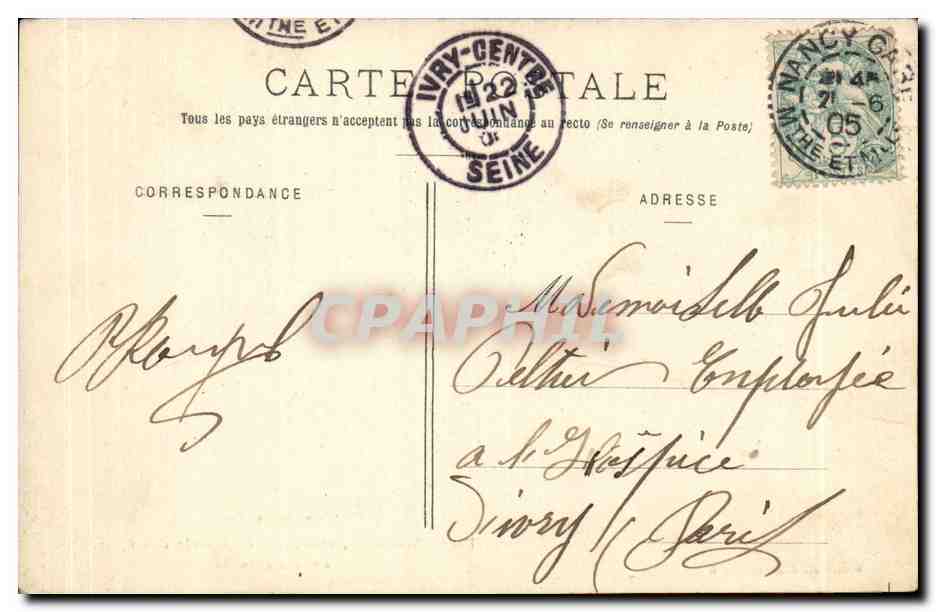 CARTE POSTALE
Tous les pays étrangers n'acceptent pas la correspondance au recto (Se renseigner à la Poste)
IVRY-CENTRE
22
JUIN
SEINE
NANCY GARE
21 -6
05
Mthe ET M
THE ET
CORRESPONDANCE
ADRESSE
CPAPHIL
Mademoiselle Julie
Peltier Employée
a l'Hospice
d'ivry / Paris